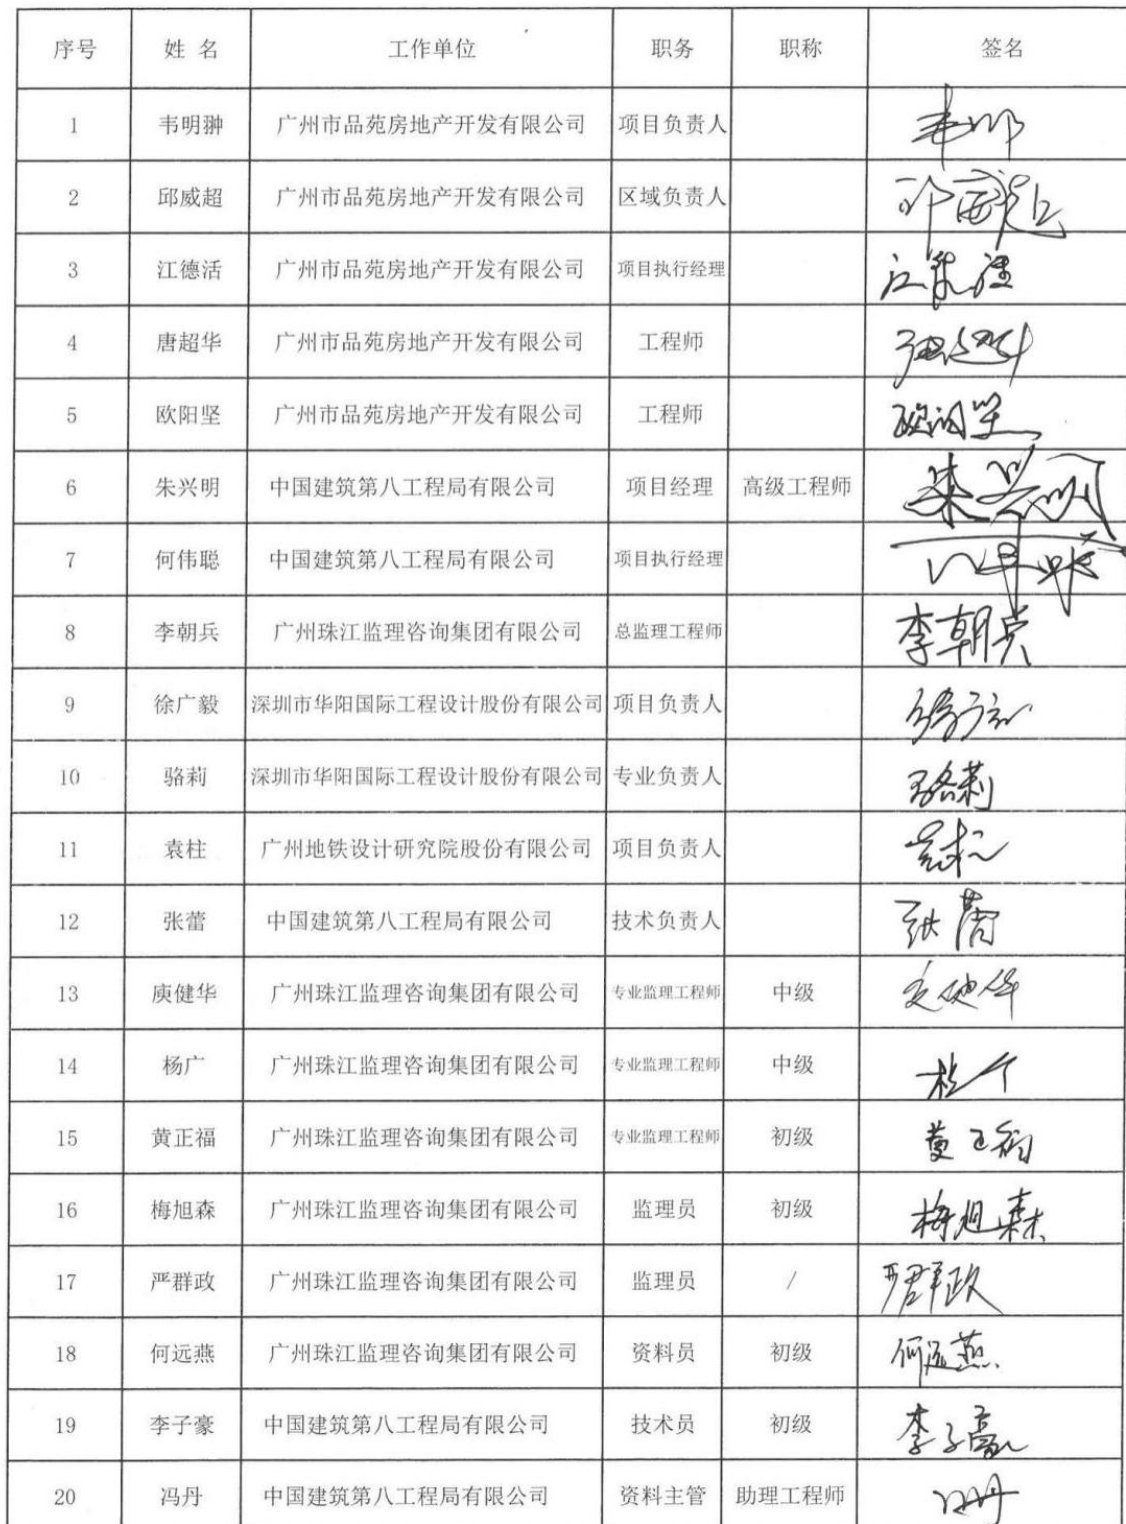 序号 姓 名 工作单位 职务 职称 签名
1 韦明翀 广州市品苑房地产开发有限公司 项目负责人
2 邱威超 广州市品苑房地产开发有限公司 区域负责人 邱威超
3 江德活 广州市品苑房地产开发有限公司 项目执行经理 江德活
4 唐超华 广州市品苑房地产开发有限公司 工程师 唐超华
5 欧阳坚 广州市品苑房地产开发有限公司 工程师 欧阳坚
6 朱兴明 中国建筑第八工程局有限公司 项目经理 高级工程师 朱兴明
7 何伟聪 中国建筑第八工程局有限公司 项目执行经理
8 李朝兵 广州珠江监理咨询集团有限公司 总监理工程师 李朝兵
9 徐广毅 深圳市华阳国际工程设计股份有限公司 项目负责人
10 骆莉 深圳市华阳国际工程设计股份有限公司 专业负责人 骆莉
11 袁柱 广州地铁设计研究院股份有限公司 项目负责人 袁柱
12 张蕾 中国建筑第八工程局有限公司 技术负责人 张蕾
13 庾健华 广州珠江监理咨询集团有限公司 专业监理工程师 中级
14 杨广 广州珠江监理咨询集团有限公司 专业监理工程师 中级 杨广
15 黄正福 广州珠江监理咨询集团有限公司 专业监理工程师 初级 黄正福
16 梅旭森 广州珠江监理咨询集团有限公司 监理员 初级 梅旭森
17 严群政 广州珠江监理咨询集团有限公司 监理员 / 严群政
18 何远燕 广州珠江监理咨询集团有限公司 资料员 初级 何远燕
19 李子豪 中国建筑第八工程局有限公司 技术员 初级 李子豪
20 冯丹 中国建筑第八工程局有限公司 资料主管 助理工程师 冯丹